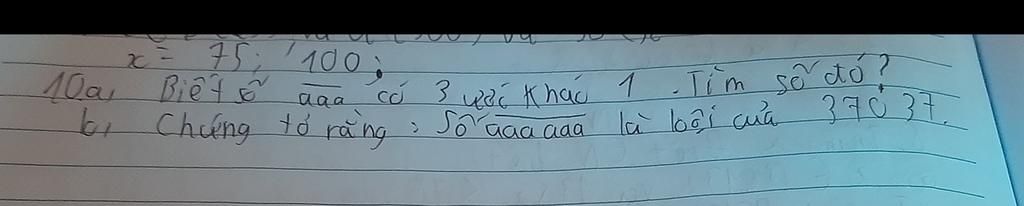 x = 75; 100;
10a, Biết số aaa có 3 ước khác 1. Tìm số đó?
b, Chứng tỏ rằng: Số aaa aaa là bội của 37037.